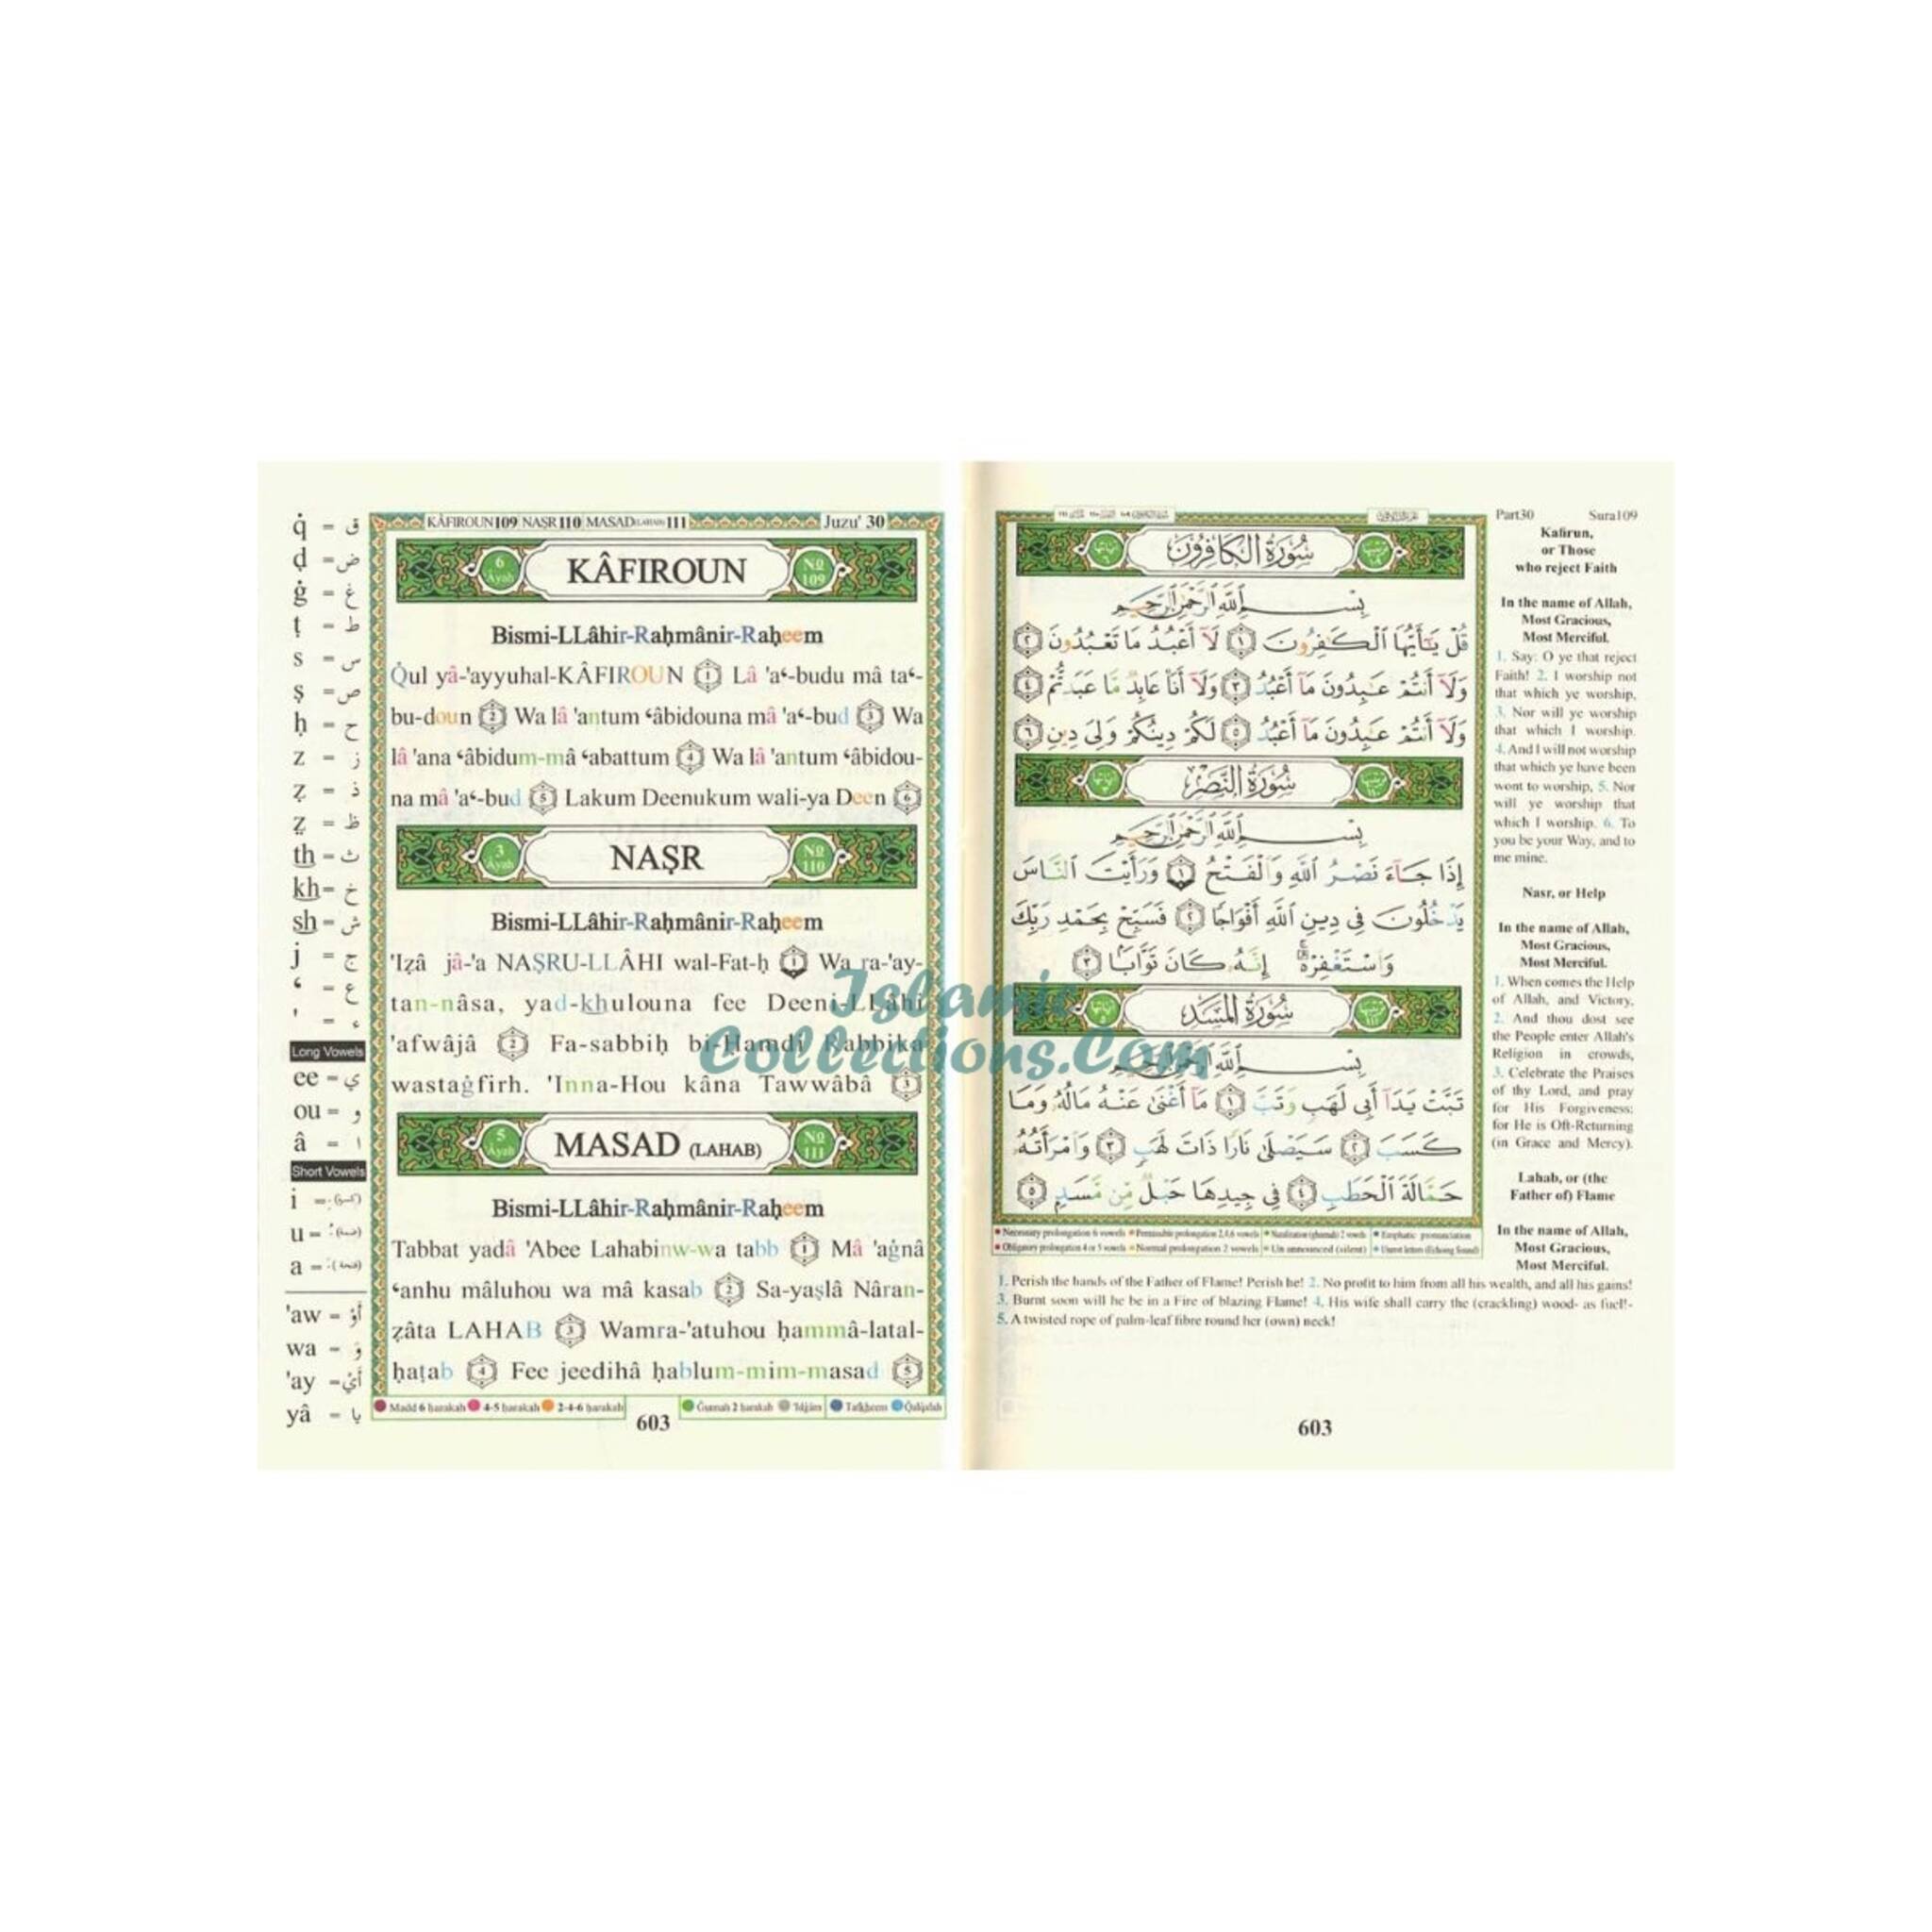 q̇ = ق
ḍ = ض
ġ = غ
ṭ = ط
s = س
ṣ = ص
ḥ = ح
z = ز
ẓ = ذ
ẓ = ظ
th = ث
kh = خ
sh = ش
j = ج
‘ = ع
' = ء
Long Vowels
ee = ي
ou = و
â = ا
Short Vowels
i =
u =
a =
'aw = أَوْ
wa = وَ
'ay = أَيْ
yâ = يا
KÂFIROUN 109 NAṢR 110 MASAD (LAHAB) 111 Juzu' 30
6 Âyah KÂFIROUN No 109
Bismi-LLâhir-Raḥmânir-Raḥeem
Q̇ul yâ-'ayyuhal-KÂFIROUN 1 Lâ 'a‘-budu mâ ta‘-
bu-doun 2 Wa lâ 'antum ‘âbidouna mâ 'a‘-bud 3 Wa
lâ 'ana ‘âbidum-mâ ‘abattum 4 Wa lâ 'antum ‘âbidou-
na mâ 'a‘-bud 5 Lakum Deenukum wali-ya Deen 6
3 Âyah NAṢR No 110
Bismi-LLâhir-Raḥmânir-Raḥeem
'Iẓâ jâ-'a NAṢRU-LLÂHI wal-Fat-ḥ 1 Wa ra-'ay-
tan-nâsa, yad-khulouna fee Deeni-LLâhi
'afwâjâ 2 Fa-sabbiḥ bi-Ḥamdi Rabbika
wastaġfirh. 'Inna-Hou kâna Tawwâbâ 3
5 Âyah MASAD (LAHAB) No 111
Bismi-LLâhir-Raḥmânir-Raḥeem
Tabbat yadâ 'Abee Lahabinw-wa tabb 1 Mâ 'aġnâ
‘anhu mâluhou wa mâ kasab 2 Sa-yaṣlâ Nâran-
ẓâta LAHAB 3 Wamra-'atuhou ḥammâ-latal-
ḥaṭab 4 Fee jeedihâ ḥablum-mim-masad 5
Madd 6 ḥarakah 4-5 ḥarakah 2-4-6 ḥarakah Ġunnah 2 ḥarakah 'Idġâm Tafkheem Q̇alq̇alah
603
Islamic
Collections.Com
سُورَةُ الكَافِرُونَ
بِسْمِ ٱللَّهِ ٱلرَّحْمَٰنِ ٱلرَّحِيمِ
قُلْ يَٰٓأَيُّهَا ٱلْكَٰفِرُونَ ١ لَآ أَعْبُدُ مَا تَعْبُدُونَ ٢
وَلَآ أَنتُمْ عَٰبِدُونَ مَآ أَعْبُدُ ٣ وَلَآ أَنَا۠ عَابِدٌ مَّا عَبَدتُّمْ ٤
وَلَآ أَنتُمْ عَٰبِدُونَ مَآ أَعْبُدُ ٥ لَكُمْ دِينُكُمْ وَلِيَ دِينِ ٦
سُورَةُ النَّصْرِ
بِسْمِ ٱللَّهِ ٱلرَّحْمَٰنِ ٱلرَّحِيمِ
إِذَا جَآءَ نَصْرُ ٱللَّهِ وَٱلْفَتْحُ ١ وَرَأَيْتَ ٱلنَّاسَ
يَدْخُلُونَ فِي دِينِ ٱللَّهِ أَفْوَاجًا ٢ فَسَبِّحْ بِحَمْدِ رَبِّكَ
وَٱسْتَغْفِرْهُ ۚ إِنَّهُۥ كَانَ تَوَّابًۢا ٣
سُورَةُ المَسَدِ
بِسْمِ ٱللَّهِ ٱلرَّحْمَٰنِ ٱلرَّحِيمِ
تَبَّتْ يَدَآ أَبِي لَهَبٍ وَتَبَّ ١ مَآ أَغْنَىٰ عَنْهُ مَالُهُۥ وَمَا
كَسَبَ ٢ سَيَصْلَىٰ نَارًا ذَاتَ لَهَبٍ ٣ وَٱمْرَأَتُهُۥ
حَمَّالَةَ ٱلْحَطَبِ ٤ فِي جِيدِهَا حَبْلٌ مِّن مَّسَدٍۭ ٥
Necessary prolongation 6 vowels Permissible prolongation 2,4,6 vowels Nasalization (ghunnah) 2 vowels Emphatic pronunciation
Obligatory prolongation 4 or 5 vowels Normal prolongation 2 vowels Un announced (silent) Unrest letters (Echoing Sound)
Part30 Sura109
Kafirun,
or Those
who reject Faith
In the name of Allah,
Most Gracious,
Most Merciful.
1. Say: O ye that reject
Faith! 2. I worship not
that which ye worship,
3. Nor will ye worship
that which I worship.
4. And I will not worship
that which ye have been
wont to worship, 5. Nor
will ye worship that
which I worship. 6. To
you be your Way, and to
me mine.
Nasr, or Help
In the name of Allah,
Most Gracious,
Most Merciful.
1. When comes the Help
of Allah, and Victory,
2. And thou dost see
the People enter Allah's
Religion in crowds,
3. Celebrate the Praises
of thy Lord, and pray
for His Forgiveness:
for He is Oft-Returning
(in Grace and Mercy).
Lahab, or (the
Father of) Flame
In the name of Allah,
Most Gracious,
Most Merciful.
1. Perish the hands of the Father of Flame! Perish he! 2. No profit to him from all his wealth, and all his gains!
3. Burnt soon will he be in a Fire of blazing Flame! 4. His wife shall carry the (crackling) wood- as fuel!-
5. A twisted rope of palm-leaf fibre round her (own) neck!
603